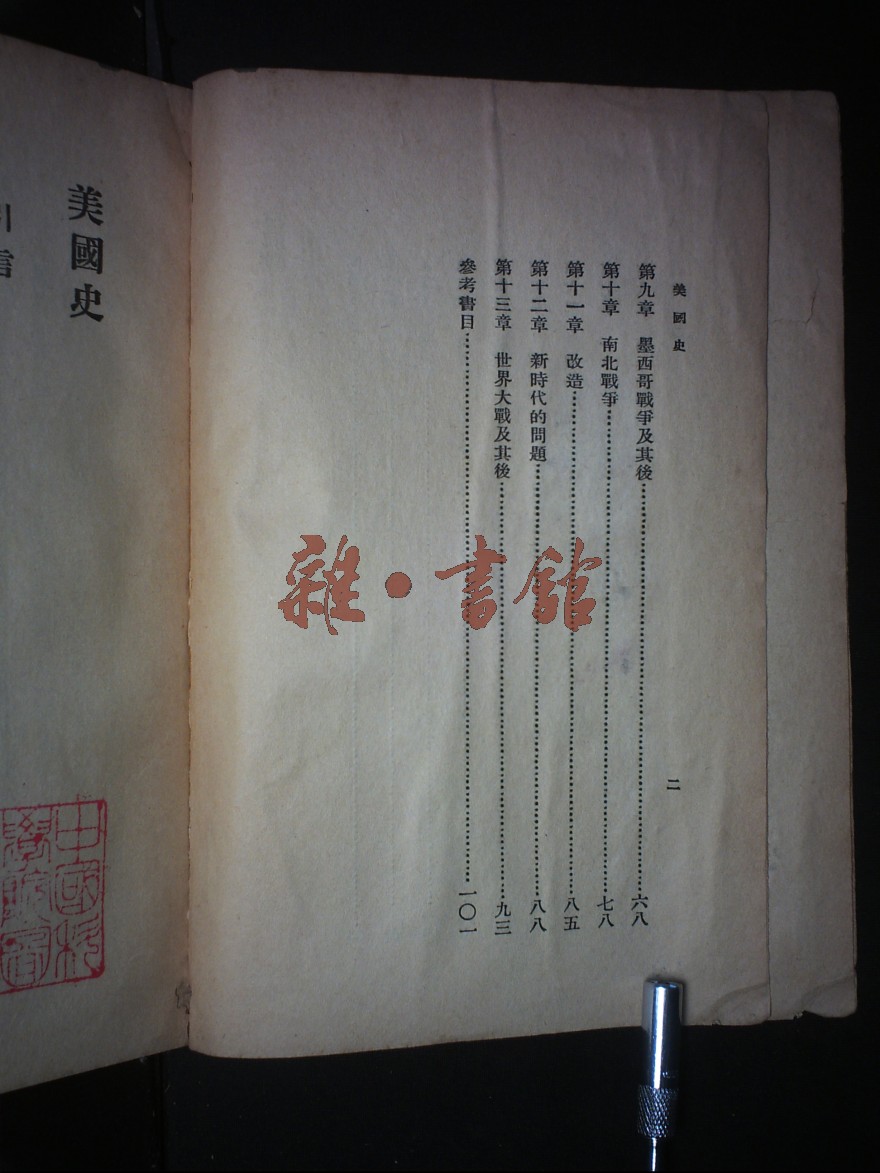 美國史
二
第九章 墨西哥戰爭及其後……六八
第十章 南北戰爭……七八
第十一章 改造……八五
第十二章 新時代的問題……八八
第十三章 世界大戰及其後……九三
參考書目……一〇一
美國史
雜·書館